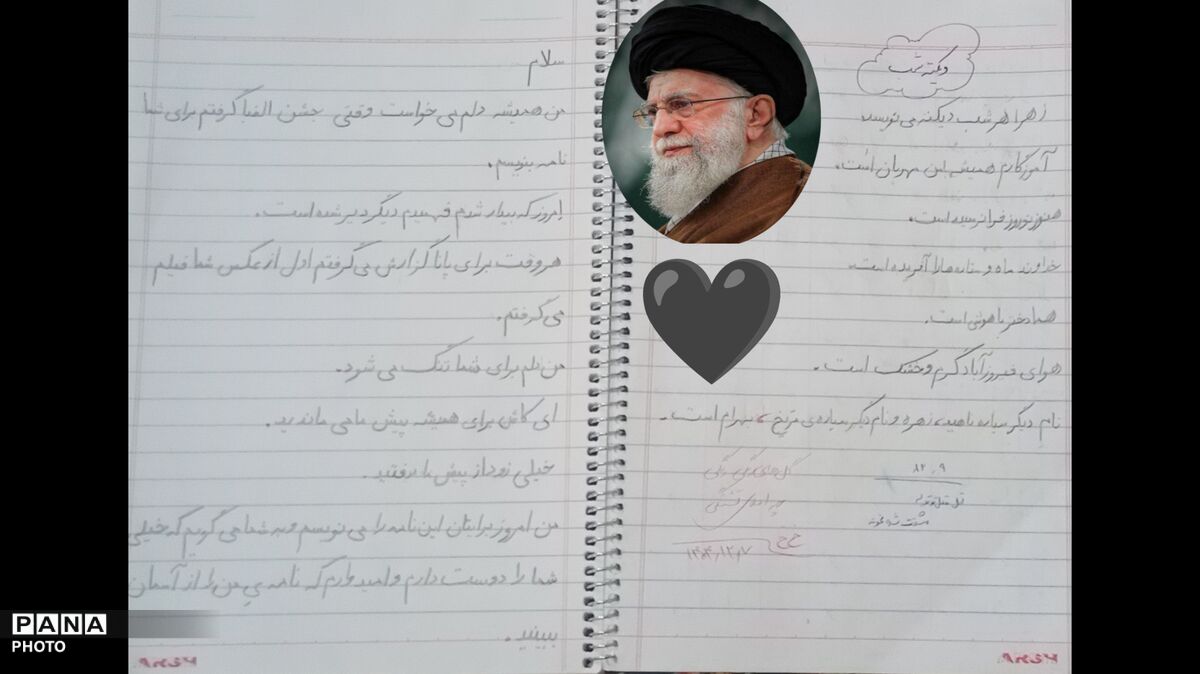 دیکته شب
زهرا هر شب دیکته می نویسد
آموزگارم همیشه مهربان است.
هنوز نوروز فرا نرسیده است.
خداوند ماه و ستاره ها را آفریده است.
هما دختر باهوشی است.
هوای فیروزآباد گرم و خشک است.
نام دیگر سیاره ناهید، زهره و نام دیگر سیاره ی مریخ، بهرام است.
گل های رنگی رنگی
۱۴۰۴,۱۲,۷
سلام
من همیشه دلم می خواست وقتی جشن الفبا گرفتم برای شما
نامه بنویسم.
امروز که بیدار شدم فهمیدم دیگر دیر شده است.
هر وقت برای پانا گزارش می گرفتم اول از عکس شما فیلم
می گرفتم.
من دلم برای شما تنگ می شود.
ای کاش برای همیشه پیش ما می ماندید.
خیلی زود از پیش ما رفتید.
من امروز برایتان این نامه را می نویسم و به شما می گویم که خیلی
شما را دوست دارم و امیدوارم که نامه ی من را از آسمان
ببینید.
PANA
PHOTO